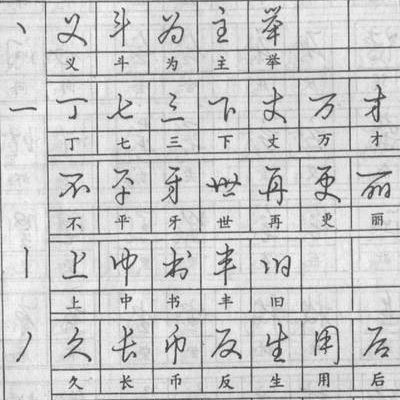 丶 义 斗 为 主 举
义 斗 为 主 举
一 丁 七 三 下 丈 万 才
丁 七 三 下 丈 万 才
不 平 牙 世 再 更 丽
不 平 牙 世 再 更 丽
丨 上 中 书 丰 旧
上 中 书 丰 旧
丿 久 长 币 反 生 用 后
久 长 币 反 生 用 后